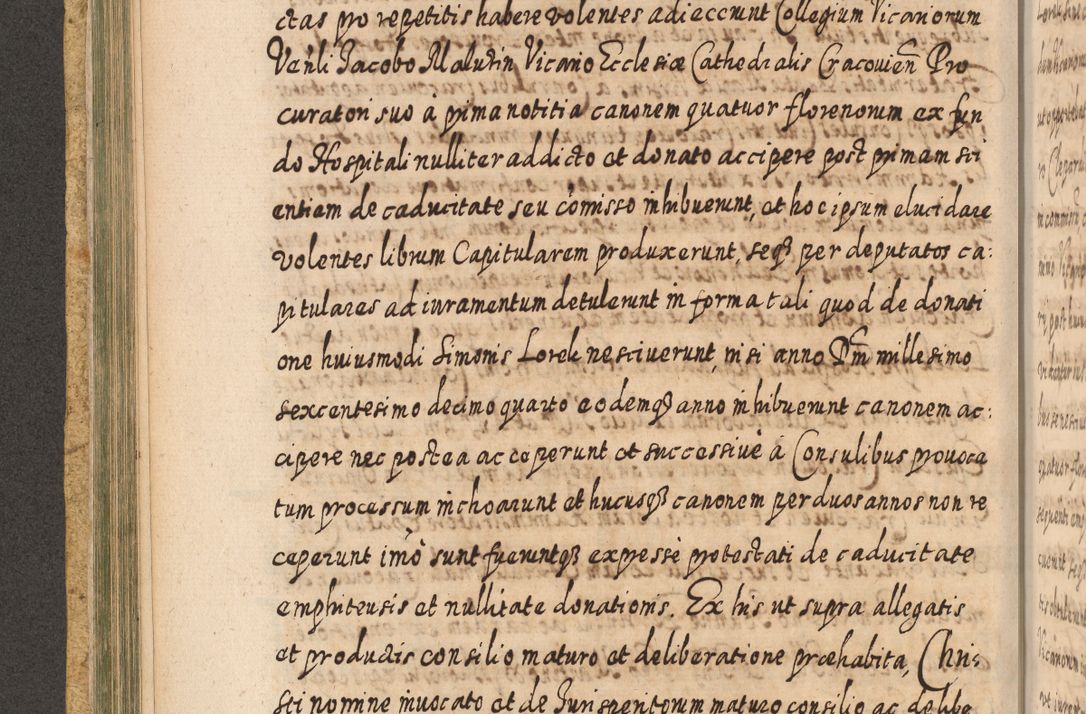 ctas pro repetitis habere volentes adieccrunt Collegium Vicariorum
Venli Jacobo Maludin Vicario Ecclesiæ Cathedralis Cracovien Pro
curatori suo à prima notitia canonem quatuor florenorum ex fun
do Hospitali nulliter addicto et donato accipere post primam sci
entiam de caducitate seu comisso inhibuerunt, et hoc ipsum elucidare
volentes librum Capitularem produxerunt, seqȝ per deputatos ca:
pitulares ad iuramentum detulerunt in forma tali quod de donati
one huiusmodi Simonis Lorek nesciverunt, nisi anno Dm̃ millesimo
sexcentesimo decimo quarto eodemqȝ anno inhibuerunt canonem ac:
cipere nec postea acceperunt et successivè à Consulibus provoca
tum processum inchoarunt et hucusqȝ canonem per duos annos non re
ceperunt imò sunt fueruntqȝ expressè protestati de caducitate
emphiteusis et nullitate donationis. Ex his ut supra allegatis
et productis consilio maturo et deliberatione præhabita, Chris
sti nomine invocato et de Jurisperitorum maturo consilio ac delibe